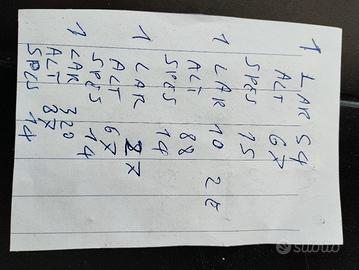 1 LAR 54
ALT 67
SPES 15
1 LAR 10
ALT 88
SPES 14
1 LAR 27
ALT 67
SPES 14
1 LAR 320
ALT 87
SPES 14
subito